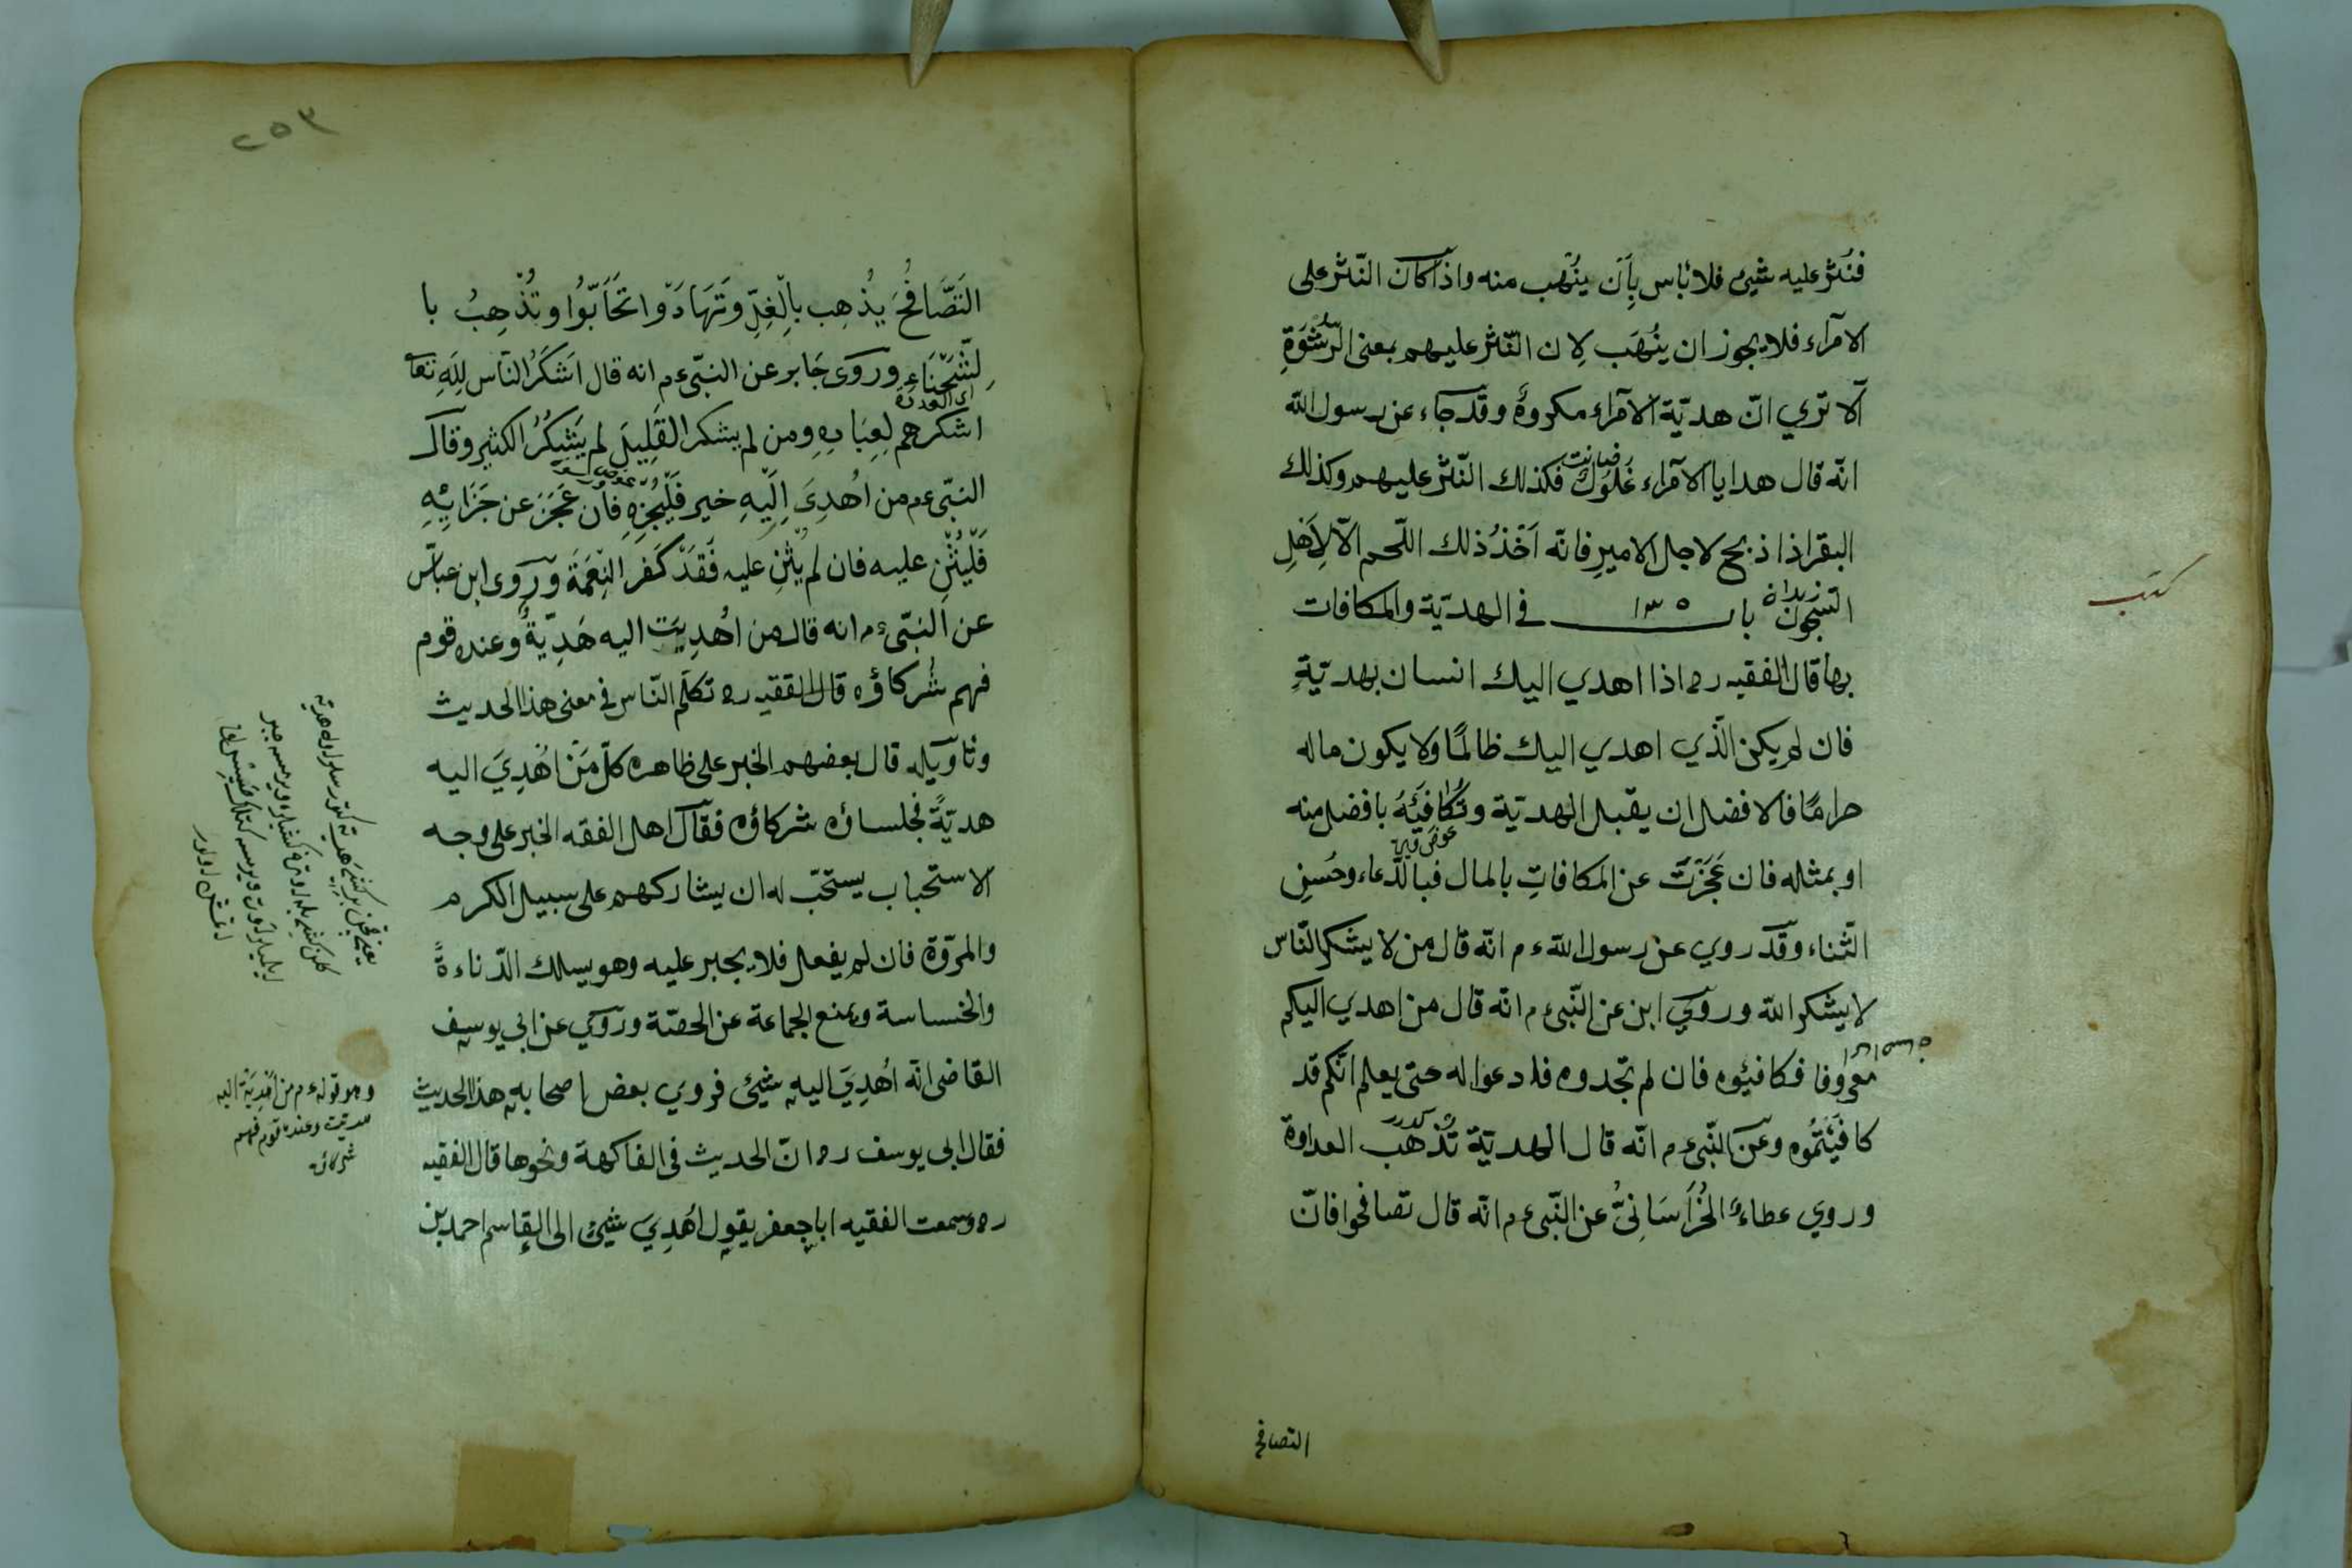 فنُثر عليه شيئ فلا بأس بأن ينُهب منه واذا كان النّثر على
الامرآء فلا يجوز ان ينُهَب لان النّثر عليهم بمعنى الرشوَةِ
ألا تري انّ هديّة الامرآء مكروهٌ وقد جاء عن رسول الله
انّه قال هدايا الامرآء غلول فكذلك النّثر عليهم وكذلك
البقر اذا ذبح لاجل الامير فانّه اَخْذُ ذلك اللّحم الّا لِاَهْلِ
السّجون باب ١٣٥ في الهديّة والمكافات
بها قال الفقيه ره اذا اهدي اليك انسان بهديّةِ
فان لم يكن الّذي اهدي اليك ظالمًا ولا يكون ماله
حرامًا فالافضل ان يقبل الهديّة وتُكَافِيَهُ بافضل منه
او بمثله فان عَجَزْتَ عن المكافاتِ بالمال فبالدّعاء وحُسنِ
الثّناء وقد روي عن رسول الله ءم انّه قال من لا يشكر النّاس
لا يشكر الله وروي ابن عن النّبى ءم انّه قال من اهدي اليكم
معروفا فكافيئوه فان لم تجدوه فادعوا له حتى يعلم انّكم قد
كافَيْتُمُوه وعن النّبى ءم انّه قال الهديّة تُذْهب العداوة
وروي عطاءٌ الخُرَاسَانِىُّ عن النّبى ءم انّه قال تصافحوا فانّ
التصافح
كتب
٢٥٣
التَصَّافُحَ يُذْهِب بالْغِلِّ وَتَهَادَوْا تَحَابّوُا وتُذْهِبُ با
لشَّحْنَاءِ وروَى جَابر عن النبّى ءم انه قال اَشكَرُ النّاس لِلّهِ تعا
اشكرهم لِعِبَادِهِ ومن لم يشكر القَلِيلَ لم يَشْكُرُ الكثير وقال
النبّى ءم من اُهْدِىَ اِلَيْهِ خير فَلْيُجْزِهِ فان عَجَزَ عن جَزَائِهِ
فَلْيُثْنِ عليه فان لم يُثْنِ عليه فَقَدْ كَفر النِعْمَةَ وروى ابن عبّاس
عن النبّى ءم انه قال من اُهْدِيَت اليه هَدِيّةٌ وعنده قوم
فهم شُركاؤه قال الفقيه ره تكلّم النّاس في معنى هذا الحديث
وتأويله قال بعضهم الخبر على ظاهره كلّ مَنْ اُهْدِىَ اليه
هديّةً فجلساؤه شركاؤه فقال اهل الفقه الخبر على وجه
الاستحباب يستحبّ له ان يشاركهم على سبيل الكرم
والمروّة فان لم يفعل فلا يجبر عليه وهو يسلك الدّناءةً
والخساسة ويمنع الجماعة عن الحصّة وروي عن ابى يوسف
القاضى انّه اُهْدِىَ اليه شيئ فروي بعض اصحابه هذا الحديث
فقال ابى يوسف ره انّ الحديث في الفاكهة ونحوها قال الفقيه
ره وسمعت الفقيه ابا جعفر يقول اُهْدِيَ شيئ الى القاسم احمد بن
وهو قوله ءم من اُهْدِيَتْ اليه
هديّة وعنده قوم فهم
شركائه